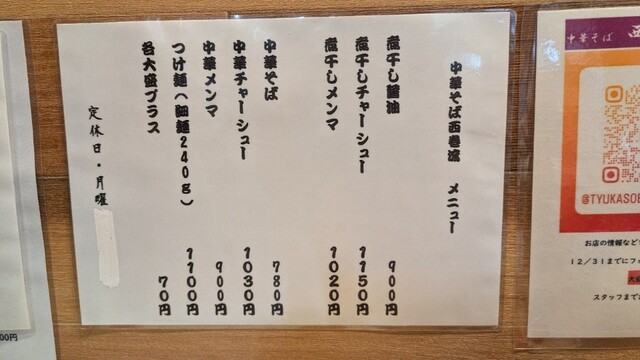 中華そば西巻流 メニュー
煮干し醤油 900円
煮干しチャーシュー 1150円
煮干しメンマ 1020円
中華そば 780円
中華チャーシュー 1030円
中華メンマ 900円
つけ麺(細麺240g) 1100円
各大盛プラス 70円
定休日・月曜
中華そば 西
@TYUKASOB
お店の情報など
12/31までにフォ
スタッフまで
00円